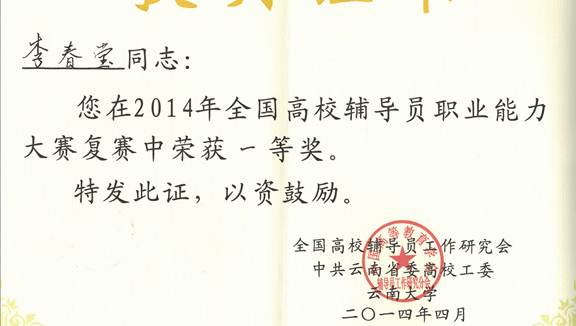 李春莹同志：
您在2014年全国高校辅导员职业能力
大赛复赛中荣获一等奖。
特发此证，以资鼓励。
全国高校辅导员工作研究会
中共云南省委高校工委
云南大学
二〇一四年四月
辅导员工作研究分会